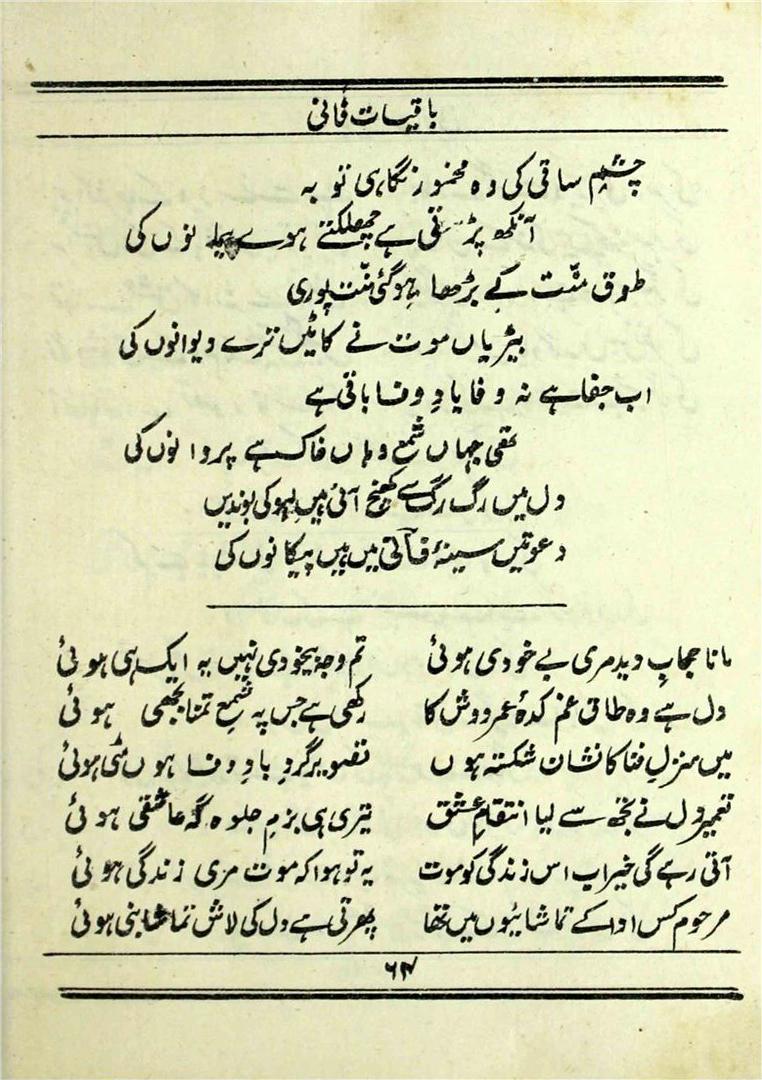 باقیات فانی
چشمِ ساقی کی وہ مخمور نگاہی توبہ
آنکھ پڑتی ہے چھلکتے ہوے پیمانوں کی
طوقِ منّت کے بڑھا ہو گئی منّت پوری
بیڑیاں موت نے کاٹیں ترے دیوانوں کی
اب جفا ہے نہ وفا یادِ وفا باقی ہے
تھی جہاں شمع وہاں خاک ہے پروانوں کی
دل میں رگ رگ سے کھنچ آئی ہیں لہو کی بوندیں
دعوتیں سینۂ فانی میں ہیں پیکانوں کی
مانا حجابِ دید مری بے خودی ہوئی تم وجہِ بیخودی نہیں یہ ایک ہی ہوئی
دل ہے وہ طاقِ غم کدۂ عمر دوش کا رکھی ہے جس پہ شمعِ تمنا بجھی ہوئی
میں منزلِ فنا کا نشانِ شکستہ ہوں تصویرِ گردِ بادِ وفا ہوں مٹی ہوئی
تعمیرِ دل نے تجھ سے لیا انتقامِ عشق تیری ہی بزم جلوہ گہِ عاشقی ہوئی
آتی رہے گی خیر اب اس زندگی کو موت یہ تو ہوا کہ موت مری زندگی ہوئی
مرحوم کس ادا کے تماشائیوں میں تھا پھرتی ہے دل کی لاش تماشا بنی ہوئی
۶۴